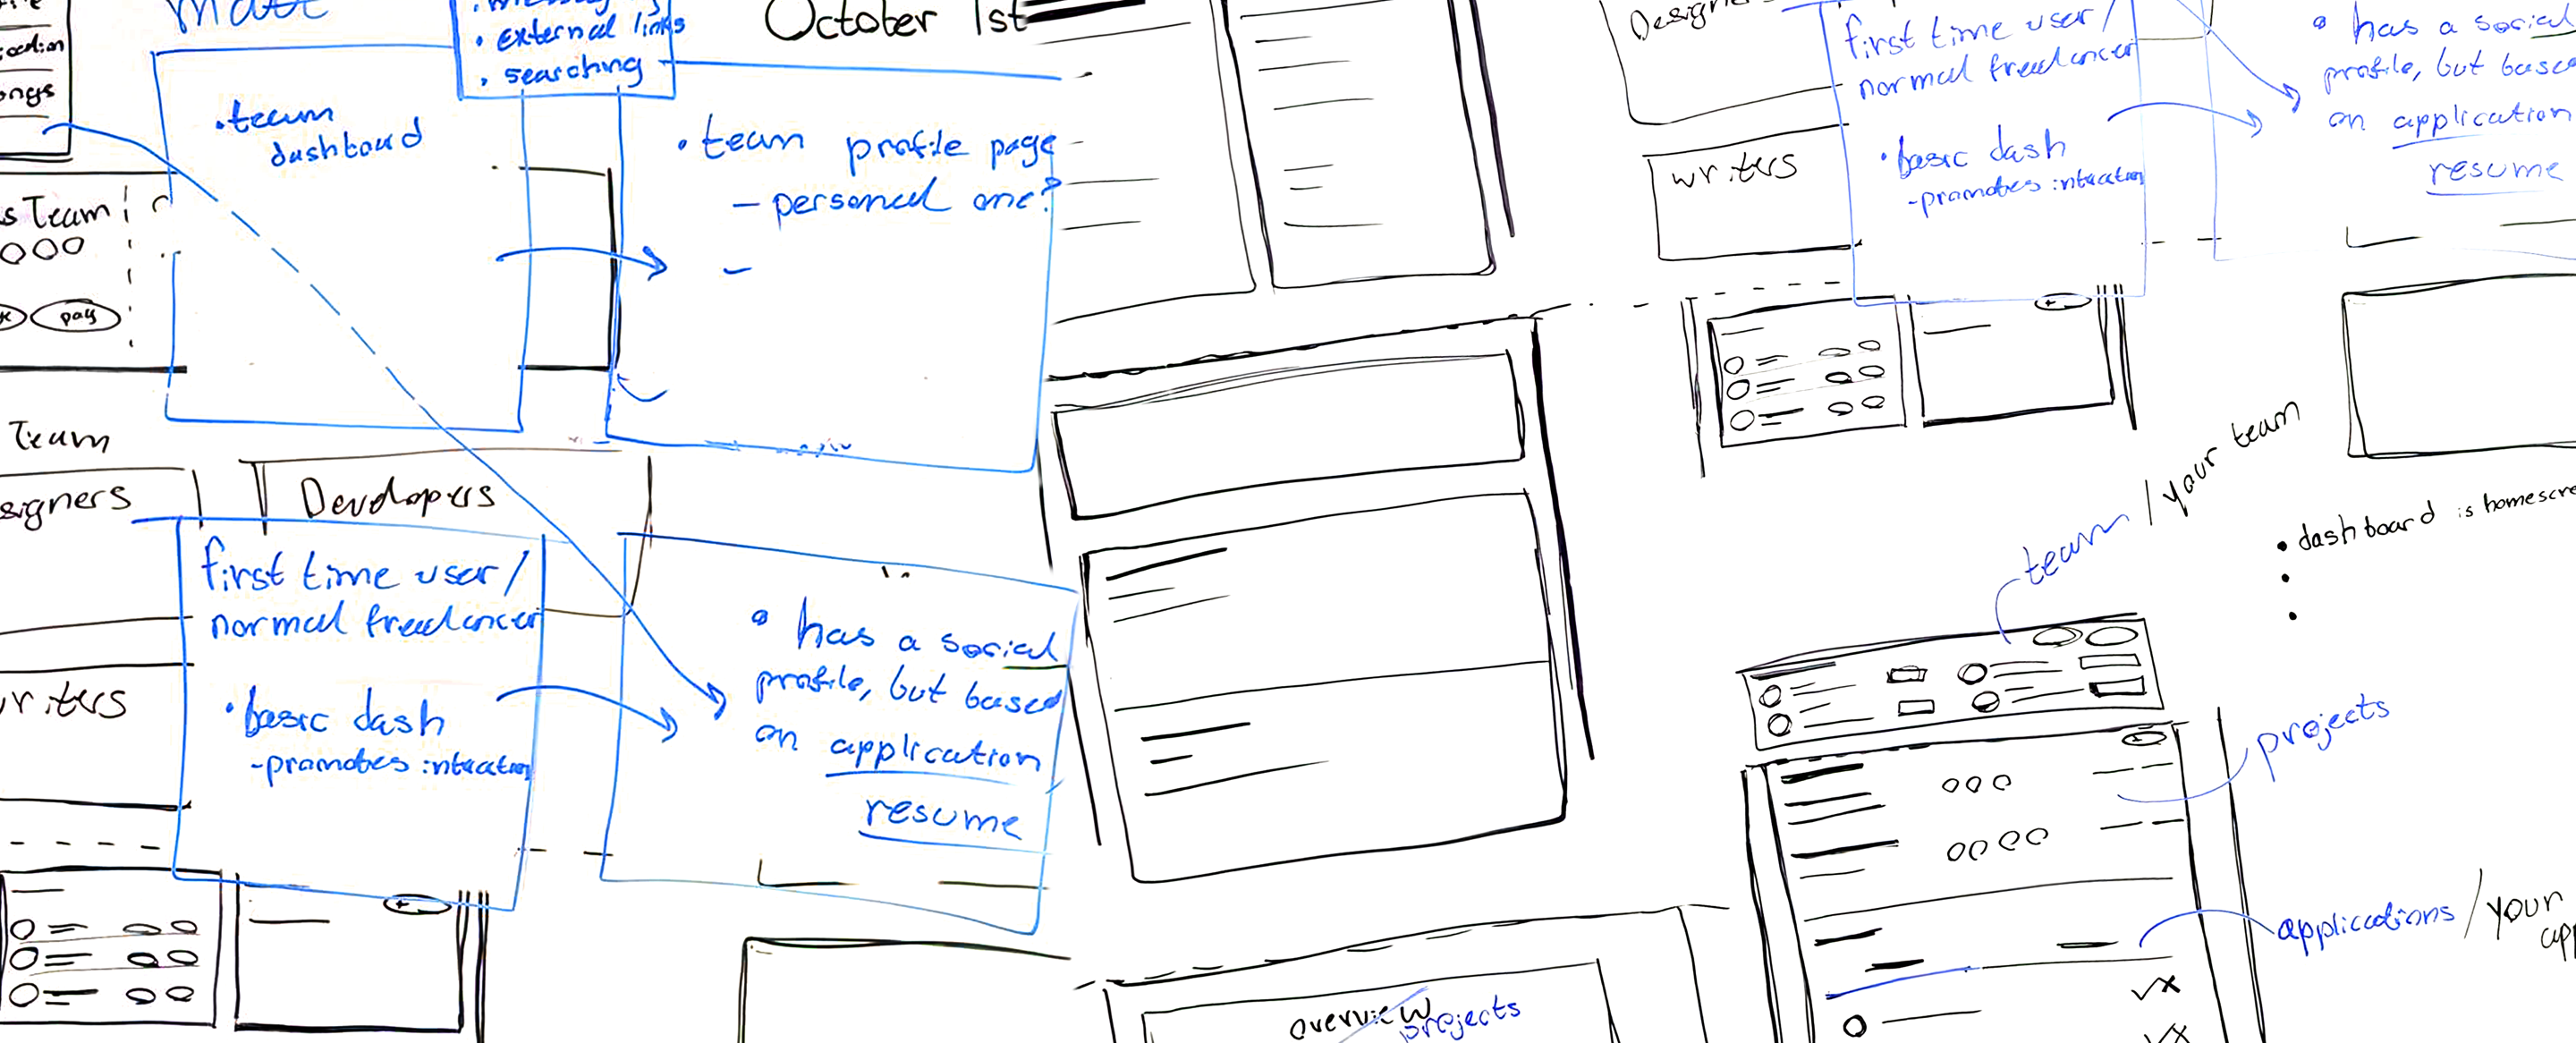 October 1st
• external links
• searching
• team
dashboard
• team profile page
- personal one?
-
s Team
pay
Team
signers
Developers
first time user/
normal freelancer
• basic dash
- promotes interaction
• has a social
profile, but based
on application
resume
writers
first time user/
normal freelancer
• basic dash
- promotes interaction
• has a social
profile, but based
on application
resume
writers
team / your team
• dashboard is homescre
•
•
projects
applications / your
app
overview
projects